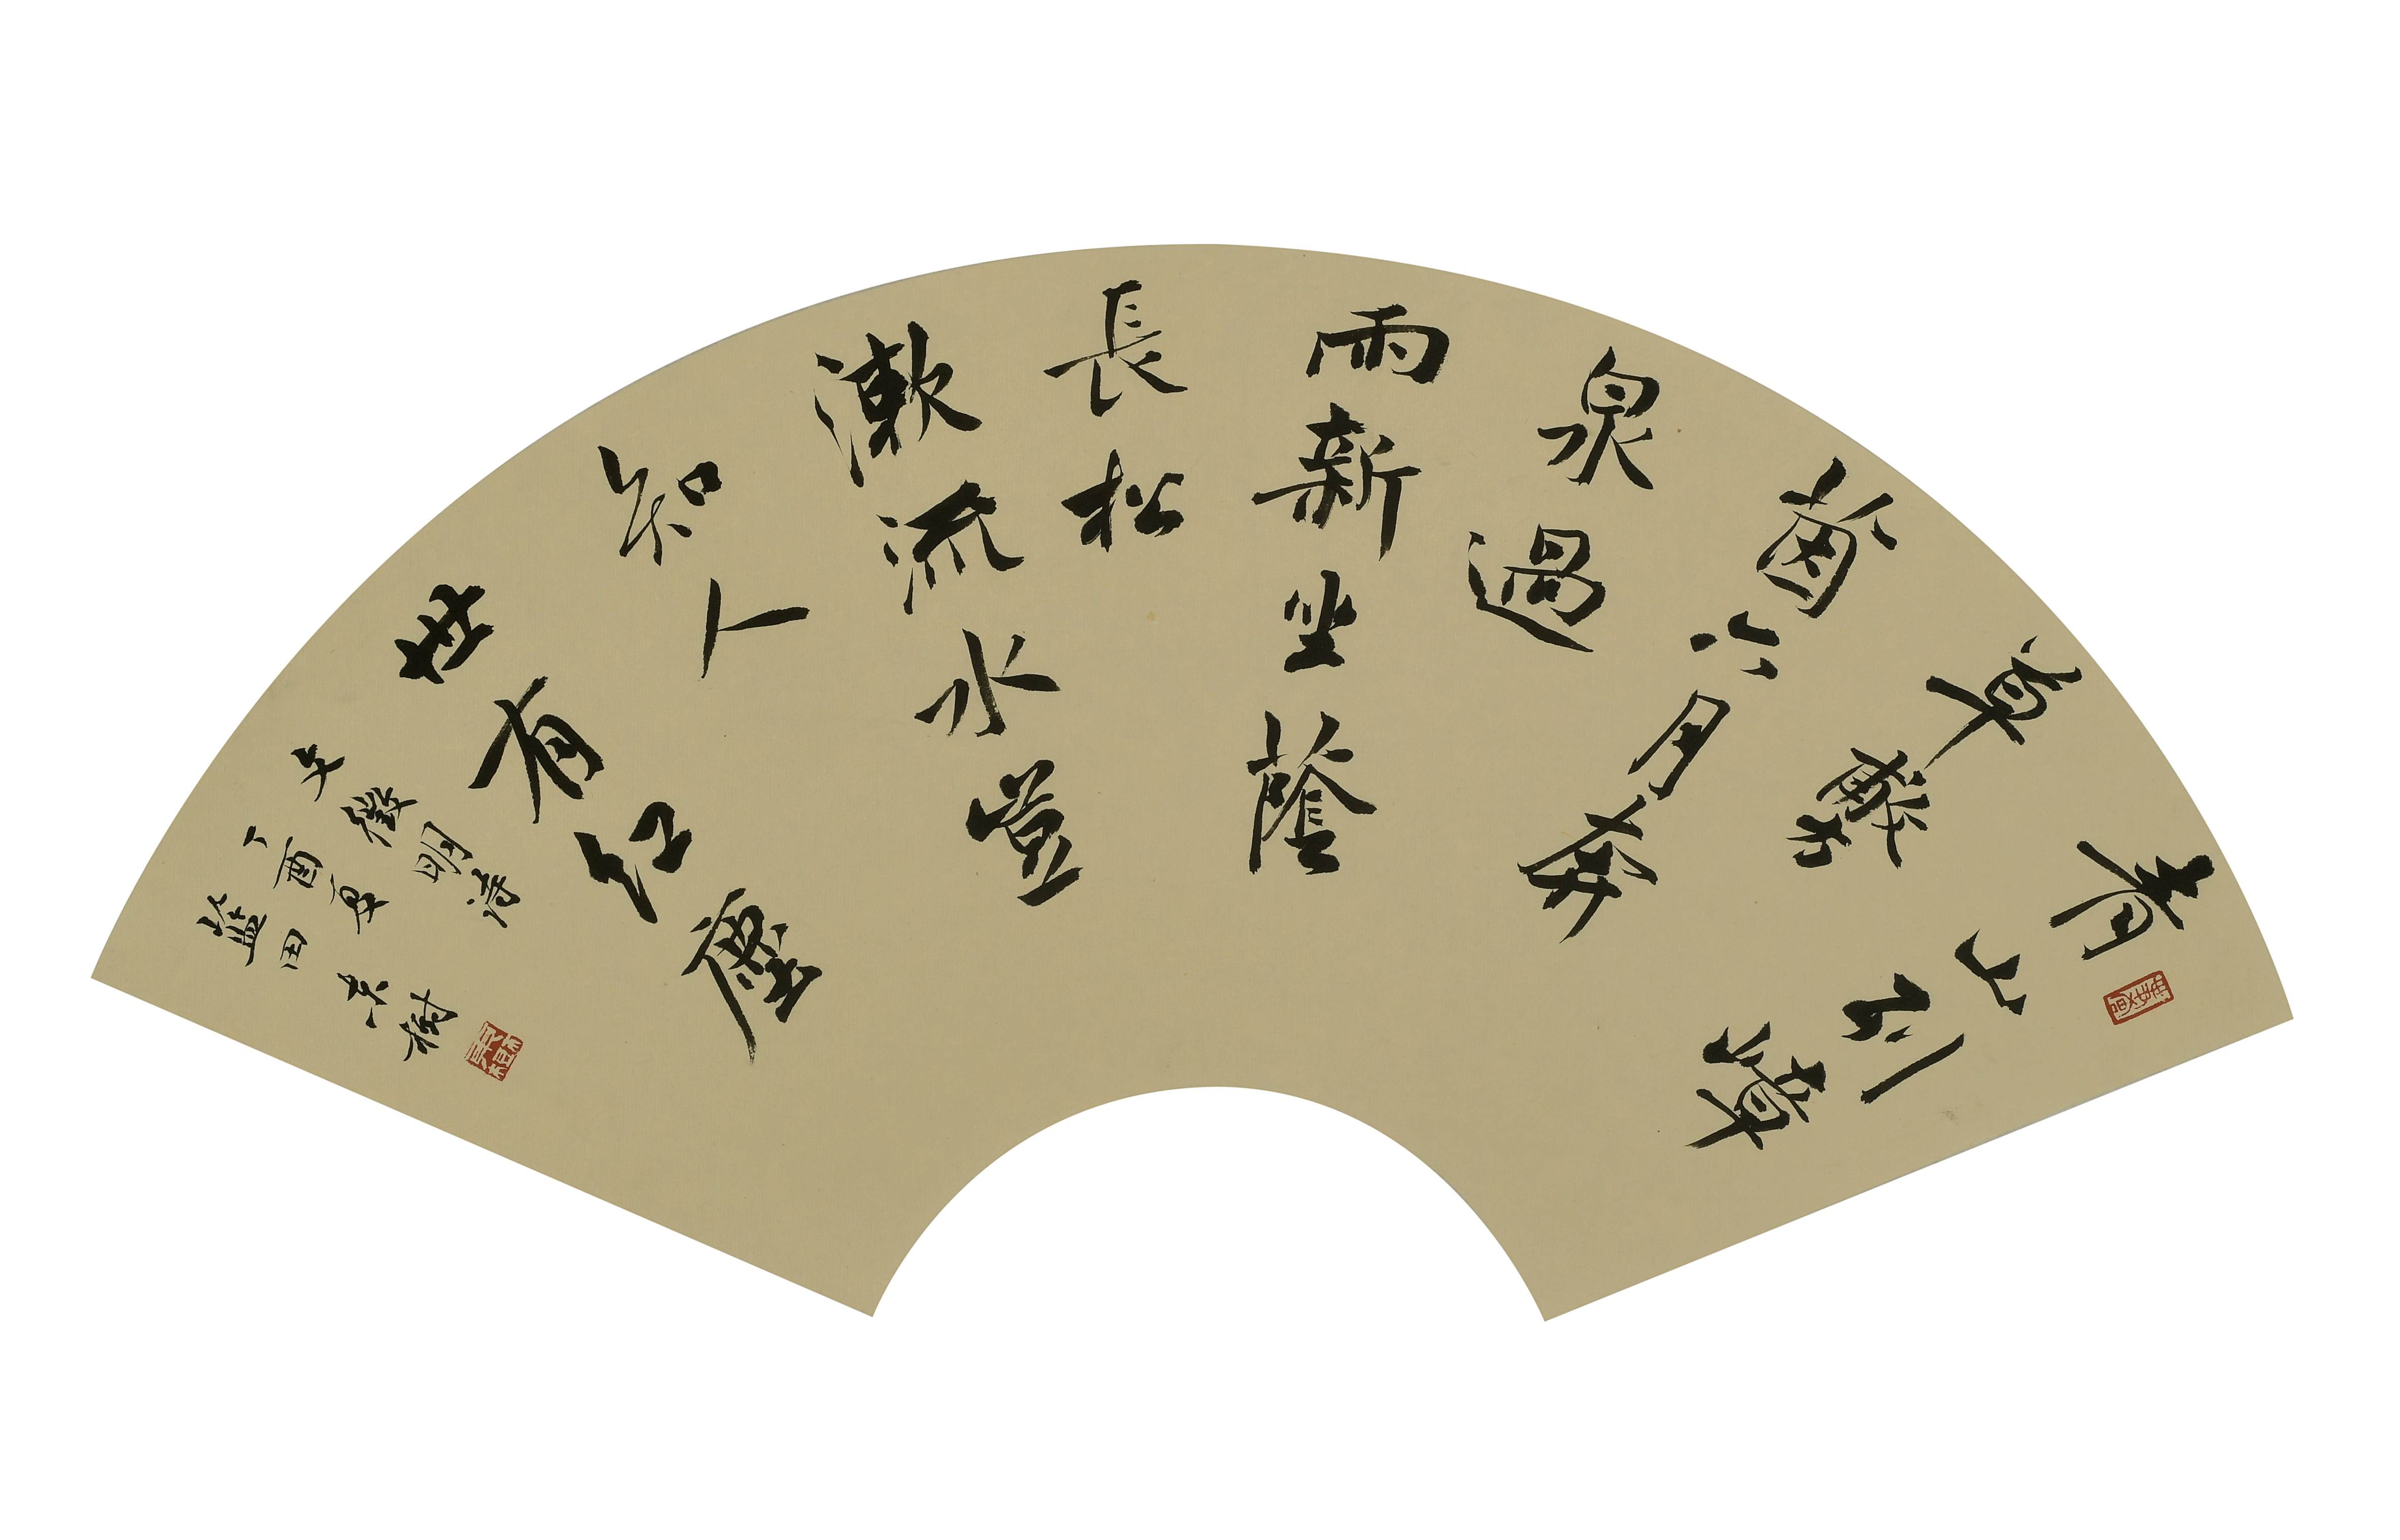 青山別嶂
草
茵六月奔
泉過
雨新坐蔭
長松
漱流水豈
知人
世有紅塵
文徵明詩
丁酉夏
藍田